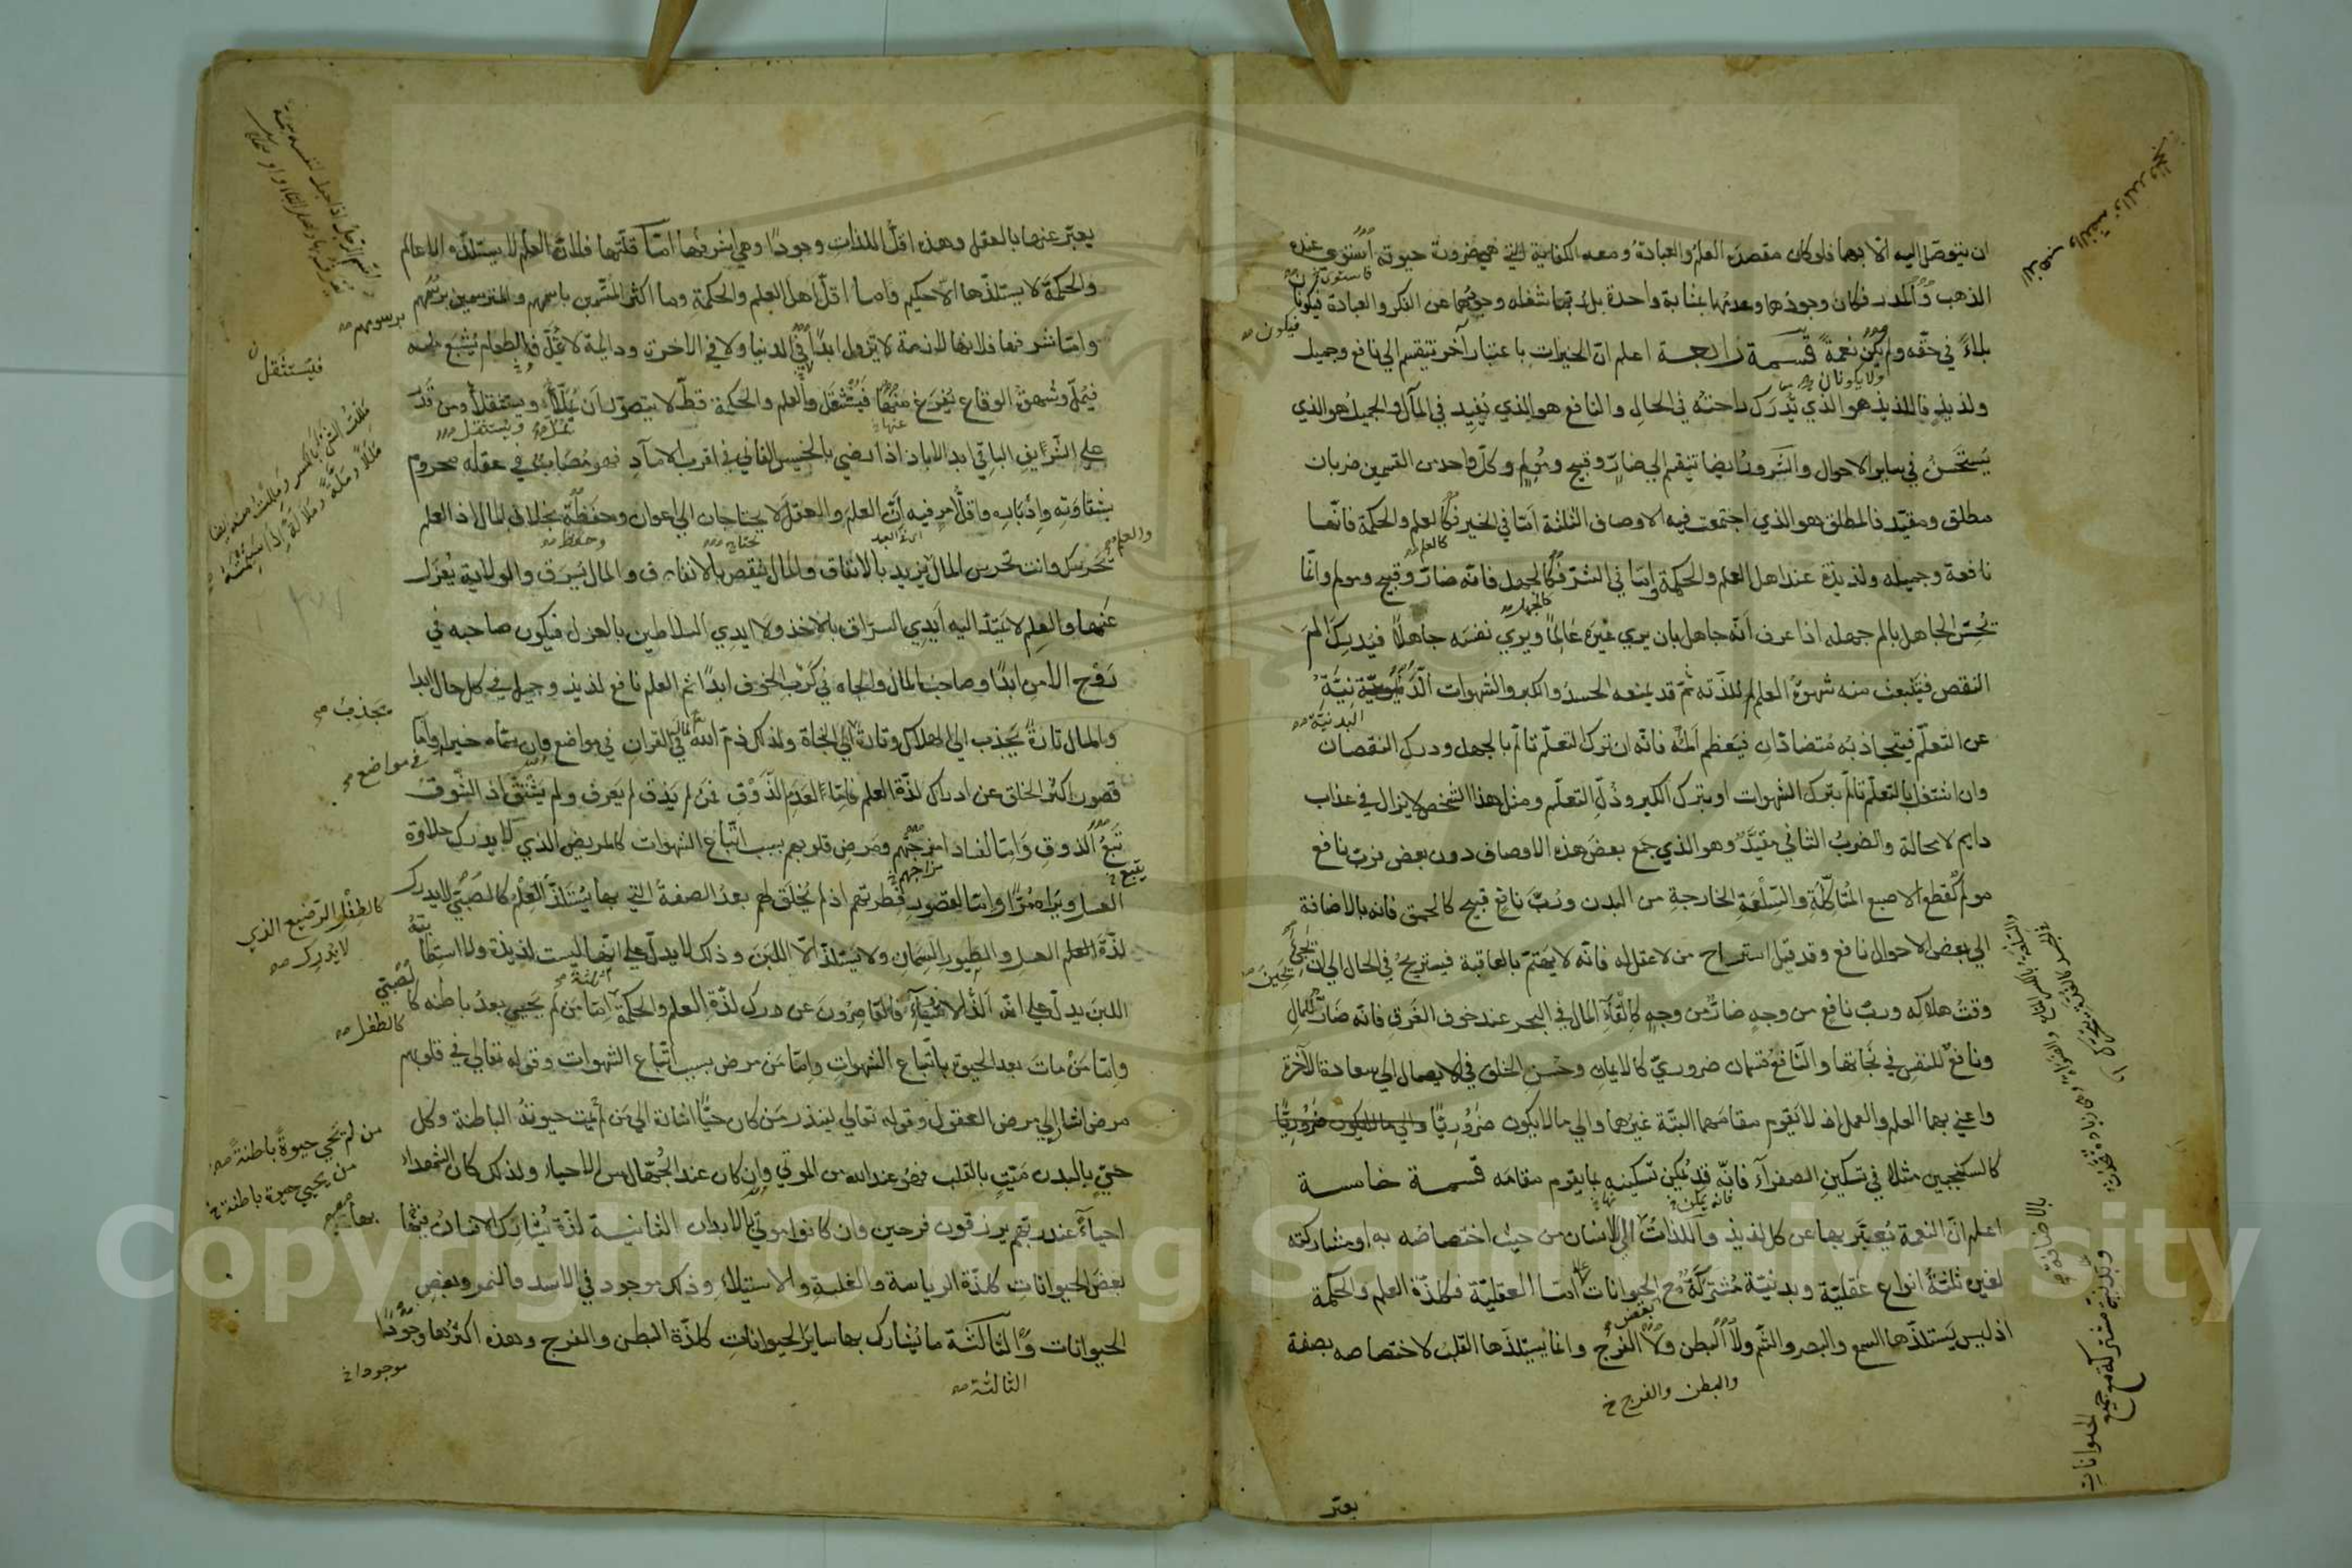 ان يتوصل اليه الا بهما فلو كان مقصده العلم والعبادة ومعه الكفاية التي هي ضرورة حيوته استوى عنده
الذهب والمدر فكان وجودها وعدمها بمثابة واحدة بل ربما شغله وجودهما عن الفكر والعبادة فيكونان
بلاءً في حقه ولم يكن نعمةً قسمة رابعة اعلم ان الخيرات باعتبار آخر تنقسم الي نافع وجميل
ولذيذٍ فاللذيذ هو الذي تُدرَك راحته في الحال والنافع هو الذي يُفِيد في المآل والجميل هو الذي
يُستَحسَنُ في ساير الاحوال والشرور ايضا تنقسم الي ضارٍّ وقبيح ومولم وكل واحد من القسمين ضربان
مطلق ومقيّد فالمطلق هو الذي اجتمعت فيه الاوصاف الثلثة امّا في الخير فكالعلم والحكمة فانها
نافعة وجميله ولذيذة عند اهل العلم والحكمة وامّا في الشر فكالجهل فانه ضار وقبيح ومولم وانّما
يُحِسّ الجاهل بالم جهله اذا عرف أنّه جاهل بان يري غيرَه عَالِمًا ويري نفسَه جاهلًا فيُدرِك المَ
النقص فينبعث منه شهوةُ العلم للذّته ثمّ قد يمنعه الحسدُ والكبر والشهوات
عن التعلّم فيتجاذبُه مُتضادّان فيَعظم اَلَمُه فانّه ان ترك التعلّم تالّم بالجهل ودرك النقصان
وان اشتغل بالتعلّم تالّم بترك الشهوات او بترك الكبر وذُلّ التعلّم ومثل هذا الشخص لا يزال في عذاب
دايم لا محالة والضربُ الثاني مقيَّد وهو الذي جمع بعضَ هذه الاوصاف دون بعض فربّ نافع
مولم كقطع الاصبع المُتاكِّلَة والسِّلعَةِ الخارجةِ من البدن ورُبَّ نافع قبيح كالحمق فانه بالاضافة
الي بعض الاحوال نافع وقد قيل استراح من لا عقل له فانّه لا يَهتمّ بالعاقبة فيستريحُ في الحال الي ان
وقتُ هلاكِه وربّ نافعٍ من وجهٍ ضارٌّ من وجهٍ كالقآء المال في البحر عند خوف الغَرَق فانّه ضارّ للمال
ونافعٌ للنفس في نَجَاتها والنّافعُ قسمان ضروريّ كالايمان وحُسنِ الخلق في الايصال الي سعادة الآخرة
واعني بهما العلم والعمل اذ لا يَقوم مقامَهما البتّة غيرُهما والي ما لا يكون ضَرُورِيًّا
كالسكنجبين مثلا في تسكين الصفرآء فانّه قد يُمكِن تسكينه بما يقوم مقامَه قسمة خامسة
اعلم انّ النعمة يُعبَّر بها عن كل لذيذ واللذاتُ الي الانسان من حيث اختصاصُه به او مشاركته
لغيره ثلثةُ انواع عقليّة وبدنيّة مُشتركَةٌ مع الحيوانات امّا العقليّة فكلذّة العلم والحكمة
اذ ليس يَستلذّها السمع والبصر والشم ولا البطن ولا الفرج وانما يستلذّها القلبُ لاختصاصه بصفة
والبطن والفرج خ
يعبّر
يعبّر عنها بالعقل وهذه اقلّ اللذاتِ وجودًا وهي اشرفُها امّا قلّتها فلانّ العلم لا يستلذّه الا عالم
والحكمةَ لا يستلذّها الّا حكيم وما اقلّ اهل العلم والحكمة وما اكثر المُتسمّين باسمهم والمترسمين برسمهم
وامّا شرفها فلانها لازمة لا تزول ابدًا في الدنيا ولا في الآخرة ودايمة لا تُمَلّ فالطعام يُشبَع منه
فيُملّ وشهوةُ الوقاع يُفرَغ منها فتُستثقَل والعلم والحكمة قطّ لا يتصوّر ان يُملّا ويستثقلا ومن قدَر
علي الشريف الباقي ابد الاباد اذا رضي بالخسيس الفاني في اقرب الامآدِ فهو مُصَاب في عقله محروم
بشقاوته وادباره واقلُّ امرٍ فيه انّ العلمَ والعقلَ لا يحتاجان الي اعوان وحفظة بخلاف المال اذ العلم
يحرسك وانت تحرس المال والعلم يزيد بالانفاق والمال ينقص بالانفاق والمال يُسرَق والولاية يُعزَل
عنها والعلم لا يمتدّ اليه ايدي السرّاق بالاخذ ولا ايدي السلاطين بالعزل فيكون صاحبه في
رَوح الامنِ ابدًا وصاحبُ المال والجاه في كَرب الخوف ابدًا ثم العلم نافع لذيذ وجميل في كل حال ابدا
والمال تارةً يَجذِب الي الهلاك وتارةً الي النجاة ولذلك ذمّ الله تعالي المال في القرآن في مواضع وان سمّاه خيرا وامّا
قصور اكثر الخلق عن ادراك لذّة العلم فامّا لعدم الذّوق فمن لم يَذق لم يَعرف ولم يَشتَق اذ الشّوقُ
تَبَعُ الذوقِ وَامّا لفساد امزجتهم ومَرض قلوبهم بسبب اتّباع الشهوات كالمريض الذي لا يدرك حلاوة
العسل ويَراه مُرًّا وامّا لقصور فطرتهم اذ لم يُخلَق لهم بعدُ الصفةُ التي بها يُستَلذّ العِلمُ كالصبي لا يدرك
لذّةَ العسل والطيورِ السِّمان ولا يستلذّ الّا اللبَنَ وذلك لا يدلّ علي انّها ليست لذيذة ولا استطابته
اللبنَ يدلّ علي انّه اَلذّ الاشياءِ فالقاصِرُون عن درك لذّة العلم والحكمة امّا مَن لم يَحيي بعدُ باطنه كالصبي
وامّا مَن ماتَ بعد الحيوة باتّباع الشهواتِ وامّا مَن مرض بسبب اتّباع الشهوات وقوله تعالي في قلوبهم
مرض اشار الي مرض العقول وقوله تعالي لينذر مَن كان حيًّا اشارة الي مَن لم يمت حيوتُه الباطنة وكل
حيّ بالبدن مَيّتٍ بالقلب فهو عند الله من الموتي وان كان عند الجُهّال من الاحياء ولذلك كان الشهداء
احيآءً عند ربّهم يرزقون فرحين وان كانوا موتي بالابدان الثانية لذّة يُشارِك الانسانُ فيها
بعضَ الحيواناتِ كلذّة الرياسة والغلبة والاستيلاء وذلك موجود في الاسد والنمر وبعض
الحيوانات والثالثة ما يُشارِك بها سايرَ الحيواناتِ كلذّة البطن والفرج وهذه اكثرُها وجُودًا
الثالثة صح
موجودا خ
برسومهم صح
فيستثقل
في مواضع
كالطفل الرضيع الذي
لا يُدرِك صح
كالطفل صح
من لم يَحيي حيوةً باطنةً صح
من يحيي حيوة باطنة خ
وبدنية مشتركة مع جميع الحيوانات
بالاضافة
Copyright © King Saud University